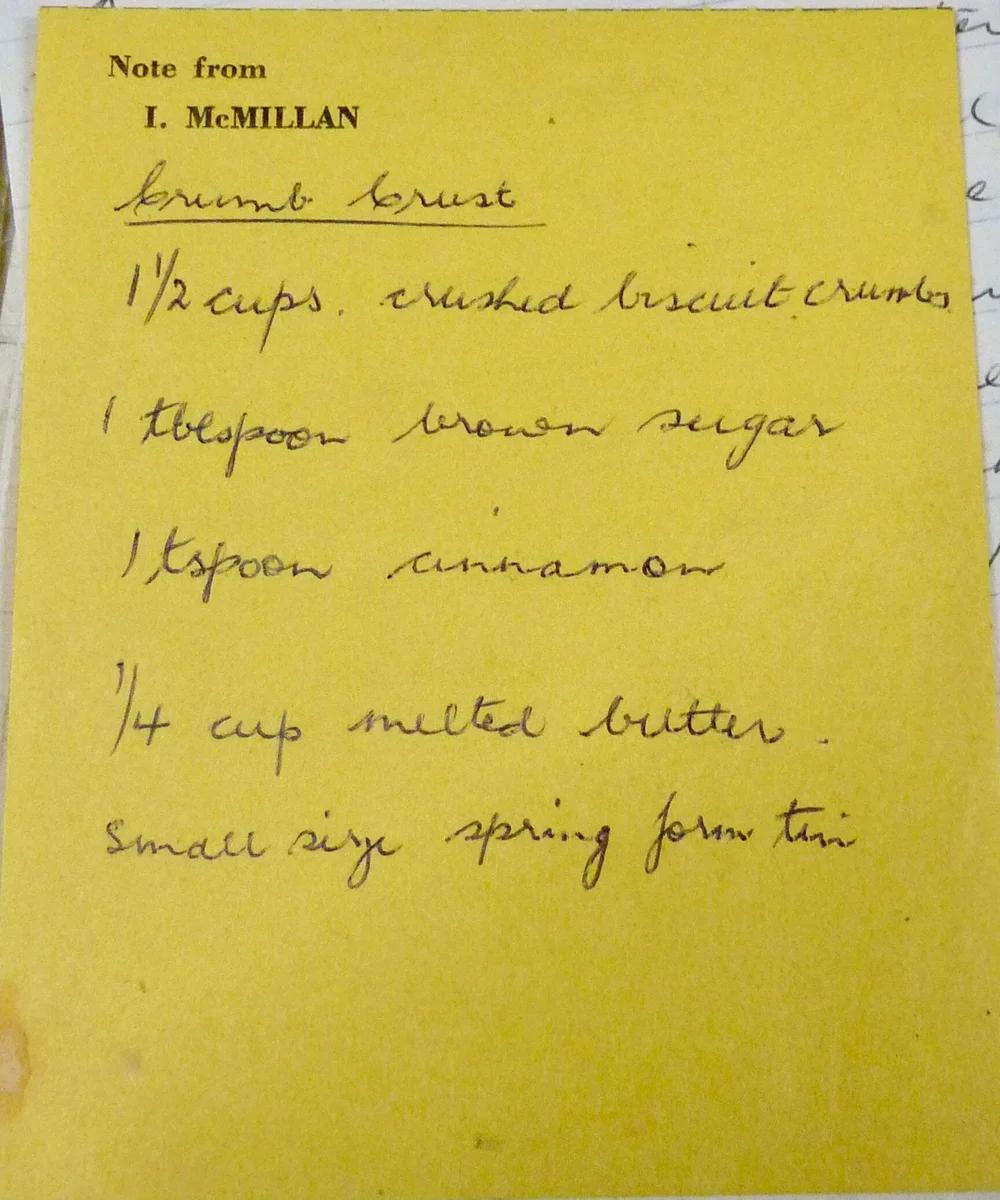 Note from
I. McMILLAN
Crumb Crust
1 1/2 cups. crushed biscuit crumbs
1 tblspoon brown sugar
1 tspoon cinnamon
1/4 cup melted butter.
small size spring form tin